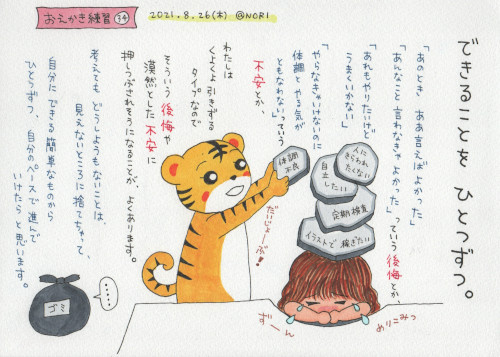 おえかき練習 34
2021.8.26(木) @NORI
できることを ひとつずつ。
「あのとき ああ言えばよかった」
「あんなこと 言わなきゃよかった」っていう 後悔とか、
「あれもやりたいけど
うまくいかない」
「やらなきゃいけないのに
体調とやる気が
ともなわない」っていう
不安とか、
わたしは
くよくよ引きずる
タイプなので
そういう 後悔や
漠然とした 不安に
押しつぶされそうになることが、よくあります。
考えても どうしようもないことは、
見えないところに捨てちゃって、
自分にできる簡単なものから
ひとつずつ、自分のペースで進んで
いけたらと思います。
体調
不良
人に
きらわれ
たくない
自立
したい
定期検査
イラストで 稼ぎたい
だいじょーぶ!!
ずーん
めりこみっ
ゴミ
……